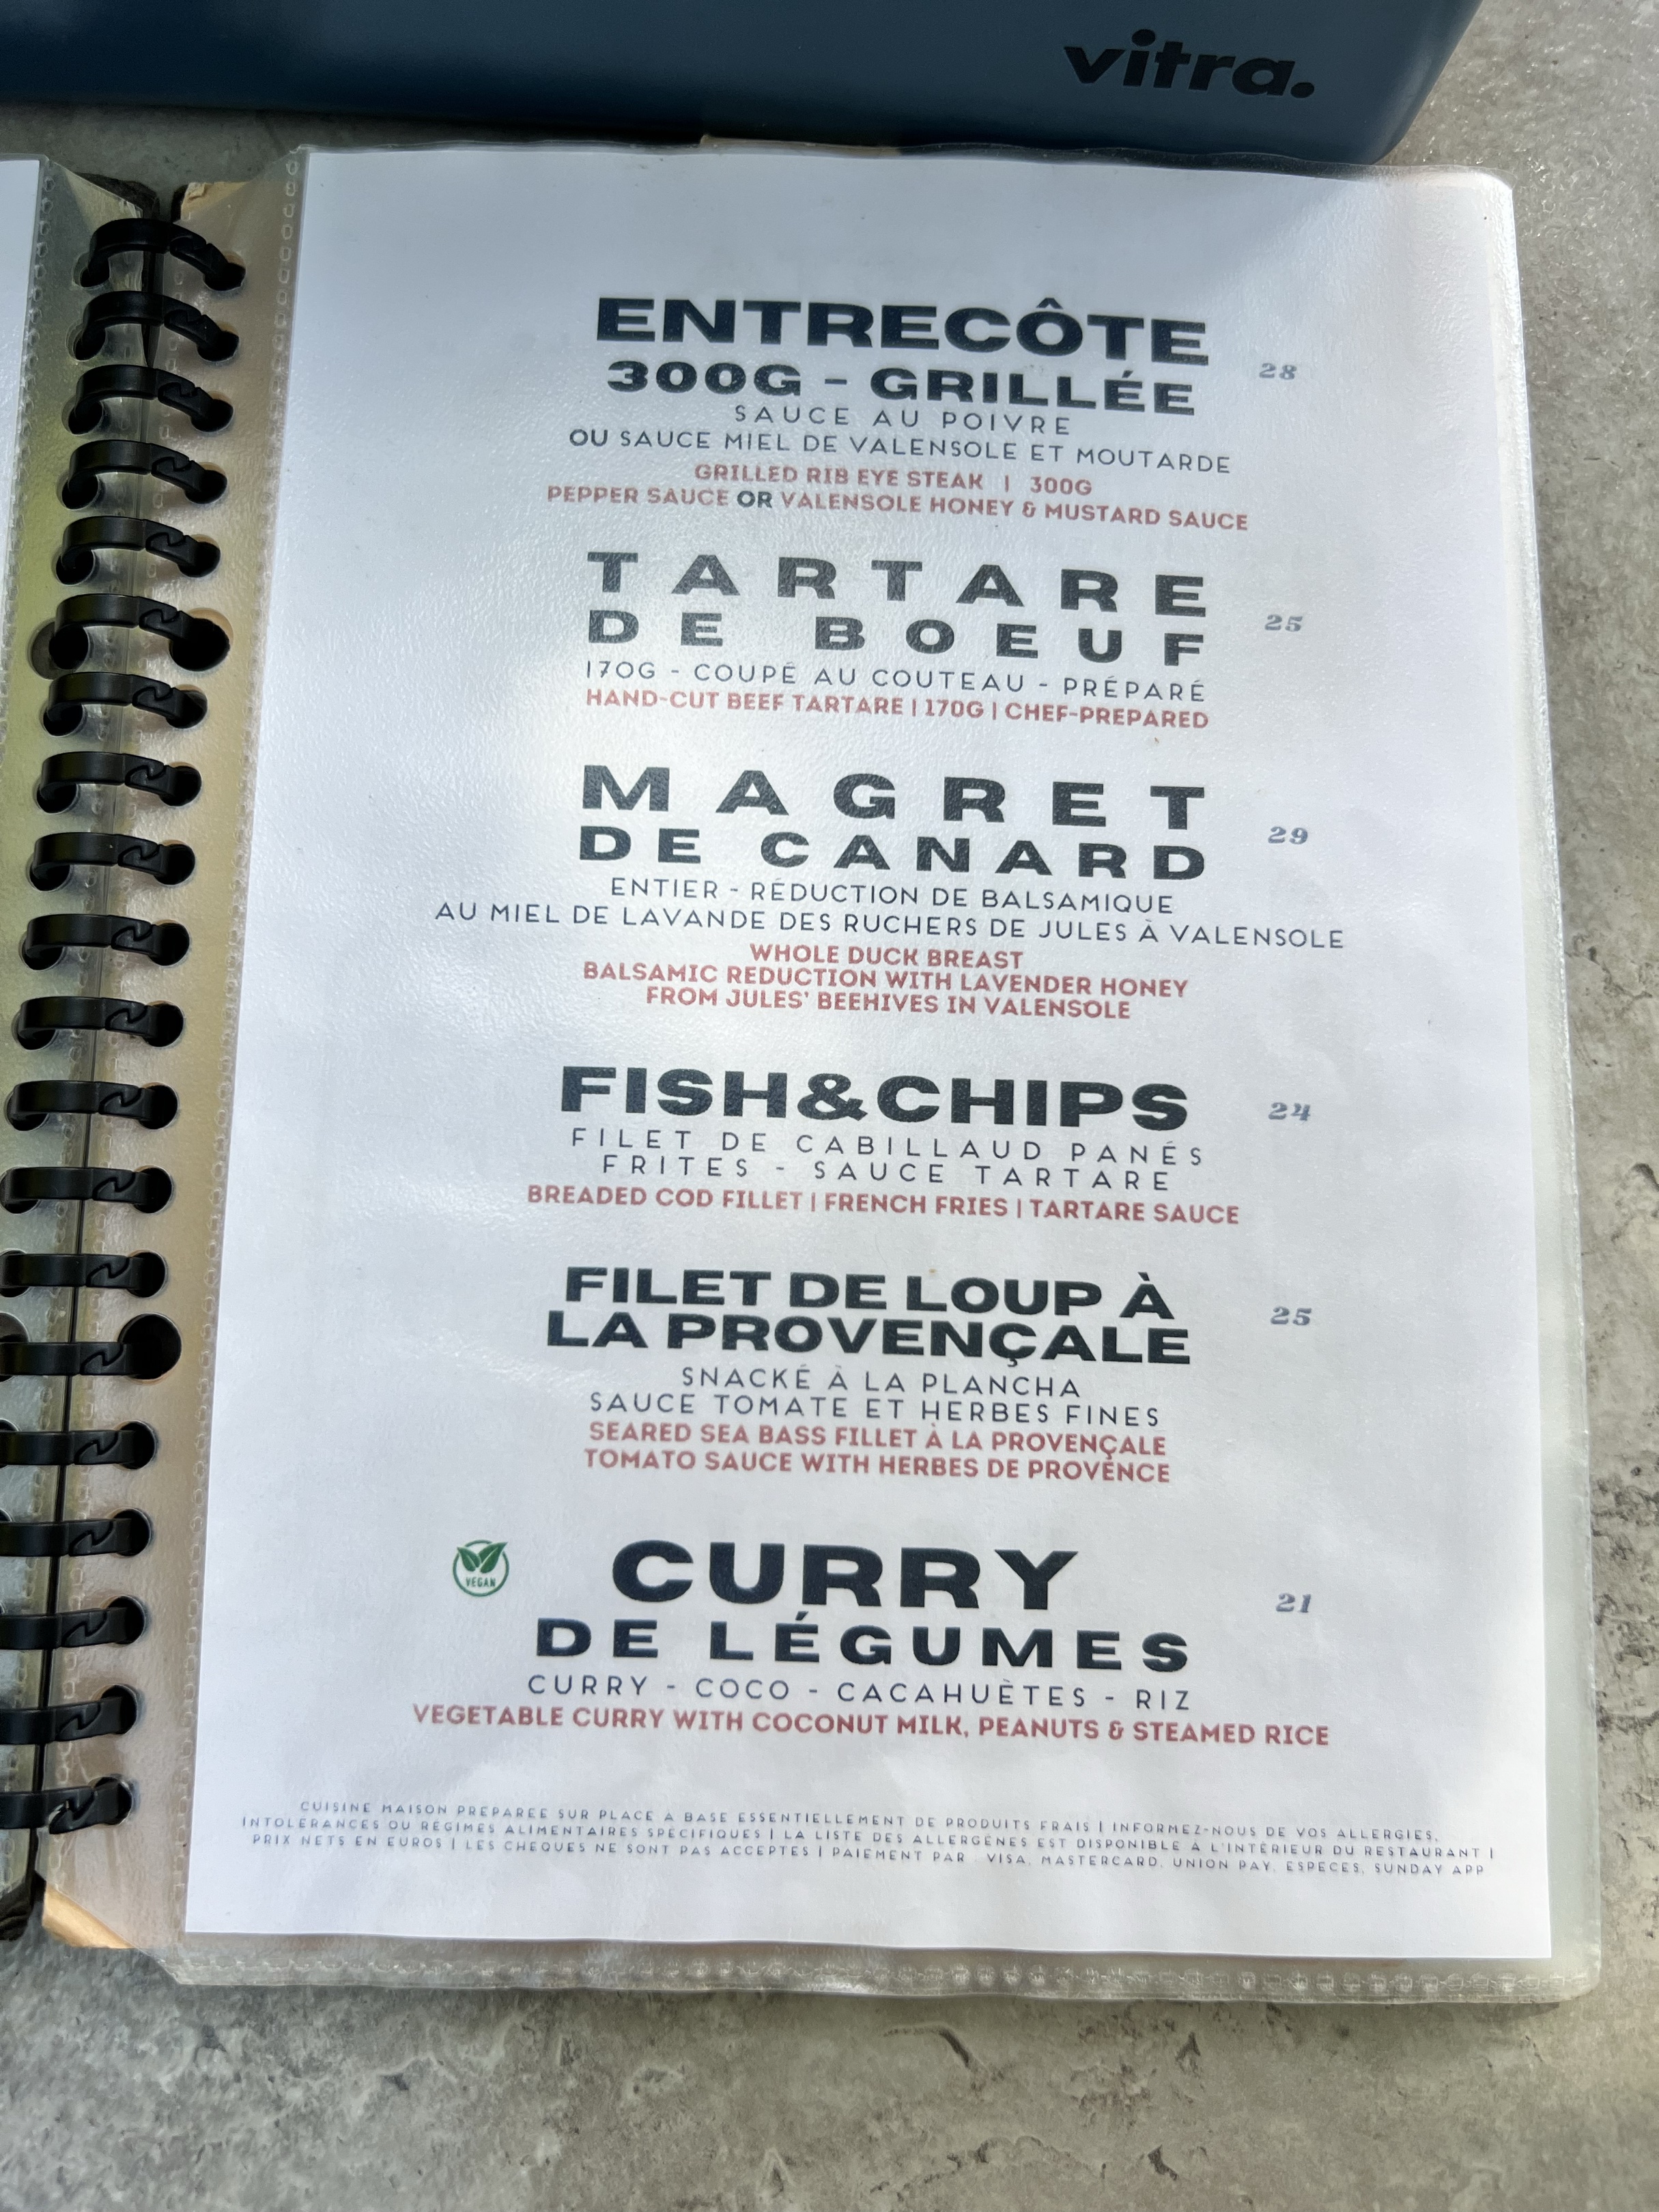 vitra.
ENTRECÔTE
300G - GRILLÉE
28
SAUCE AU POIVRE
OU SAUCE MIEL DE VALENSOLE ET MOUTARDE
GRILLED RIB EYE STEAK | 300G
PEPPER SAUCE OR VALENSOLE HONEY & MUSTARD SAUCE
TARTARE
DE BOEUF
25
170G - COUPÉ AU COUTEAU - PRÉPARÉ
HAND-CUT BEEF TARTARE | 170G | CHEF-PREPARED
MAGRET
DE CANARD
29
ENTIER - RÉDUCTION DE BALSAMIQUE
AU MIEL DE LAVANDE DES RUCHERS DE JULES À VALENSOLE
WHOLE DUCK BREAST
BALSAMIC REDUCTION WITH LAVENDER HONEY
FROM JULES' BEEHIVES IN VALENSOLE
FISH&CHIPS
24
FILET DE CABILLAUD PANÉS
FRITES - SAUCE TARTARE
BREADED COD FILLET | FRENCH FRIES | TARTARE SAUCE
FILET DE LOUP À
LA PROVENÇALE
25
SNACKÉ À LA PLANCHA
SAUCE TOMATE ET HERBES FINES
SEARED SEA BASS FILLET À LA PROVENÇALE
TOMATO SAUCE WITH HERBES DE PROVENCE
VEGAN
CURRY
DE LÉGUMES
21
CURRY - COCO - CACAHUÈTES - RIZ
VEGETABLE CURRY WITH COCONUT MILK, PEANUTS & STEAMED RICE
CUISINE MAISON PRÉPARÉE SUR PLACE À BASE ESSENTIELLEMENT DE PRODUITS FRAIS | INFORMEZ-NOUS DE VOS ALLERGIES,
INTOLÉRANCES OU RÉGIMES ALIMENTAIRES SPÉCIFIQUES | LA LISTE DES ALLERGÈNES EST DISPONIBLE À L'INTÉRIEUR DU RESTAURANT |
PRIX NETS EN EUROS | LES CHÈQUES NE SONT PAS ACCEPTÉS | PAIEMENT PAR : VISA, MASTERCARD, UNION PAY, ESPÈCES, SUNDAY APP